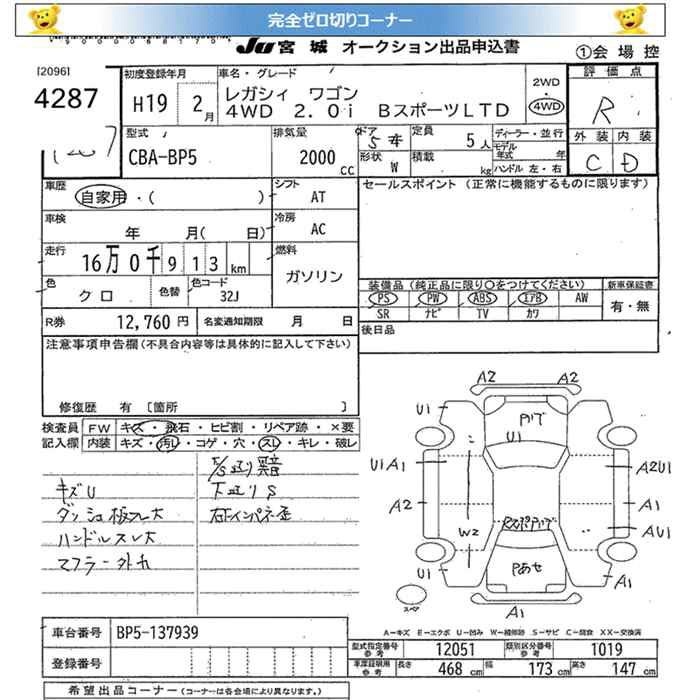 完全ゼロ切りコーナー
JU 宮城 オークション出品申込書
①会場控
[2096]
4287
初度登録年月
H19 2月
車名・グレード
レガシィ ワゴン
4WD 2.0i BスポーツLTD
2WD
・
4WD
評価点
R
外装 内装
C D
型式
CBA-BP5
排気量
2000 cc
ドア 5本
形状 W
定員 5人
積載 kg
ディーラー・並行
モデル年式 年
ハンドル 左・右
車歴
自家用・( )
シフト
AT
セールスポイント (正常に機能するものに限ります)
車検
年 月( 日)
冷房
AC
走行
16万0千913 km
燃料
ガソリン
色
クロ
色替
色コード
32J
装備品 (純正品に限り〇をつけてください)
新車保証書
PS PW ABS エアB AW
SR ナビ TV カワ
有・無
R券 12,760円
名変通知期限 月 日
後日品
注意事項申告欄 (不具合内容等は具体的に記入して下さい)
修復歴 有 〔箇所 〕
検査員記入欄
FW キズ・飛石・ヒビ割・リペア跡・×要
内装 キズ・汚レ・コゲ・穴・スレ・キレ・破レ
下廻りS
キズU
ダッシュ板スレ大
ハンドルスレ大
マフラー外れ
右インパネ歪
A2 A2
U1
U1
U1A1 A2U1
A2 A1
AU1
W2
U1 A1
A1
スペア
A-キズ E-エクボ U-凹み W-補修跡 S-サビ C-腐食 XX-交換済
車台番号 BP5-137939
登録番号
型式指定番号 参考 12051
類別区分番号 参考 1019
車庫証明用 参考 長さ 468cm 幅 173cm 高さ 147cm
希望出品コーナー (コーナーは各会場により異なります)